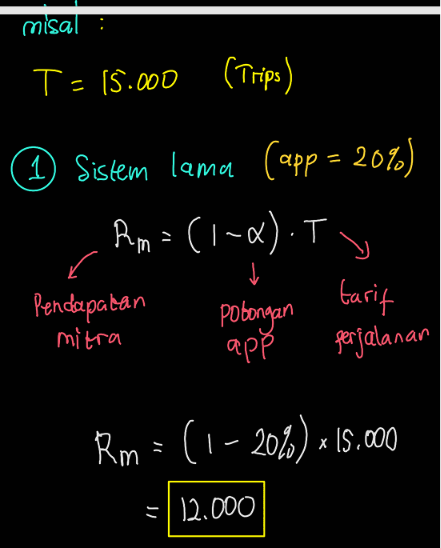 misal :
T = 15.000 (Trips)
1 Sistem lama (app = 20%)
Rm = (1-α) · T
Pendapatan mitra
potongan app
tarif perjalanan
Rm = (1 - 20%) × 15.000
= 12.000